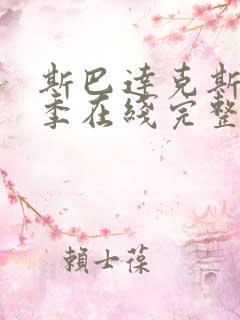 斯巴达克斯
季在线完整
賴士葆